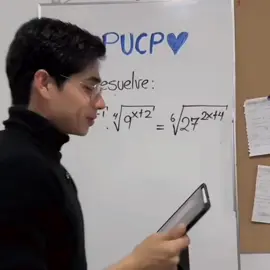 PUCP♥
esuelve:
⁻¹ · ⁴√9ˣ⁺² = ⁶√27²ˣ⁺⁴